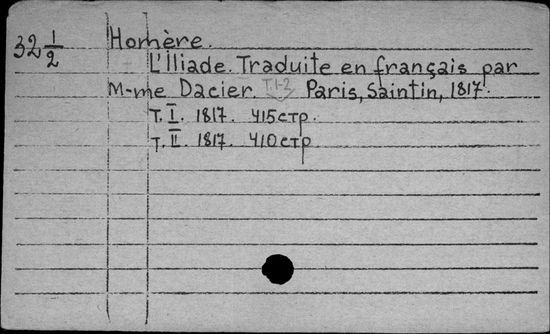 32 1/2
Homère.
L'Iliade. Traduite en français par
M-me Dacier. T.1-2 Paris, Saintin, 1817.
Т. I. 1817. 415стр.
Т. II. 1817. 410стр.